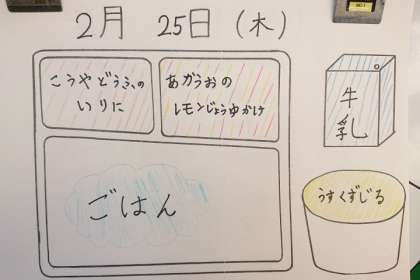 2月 25日 (木)
こうやどうふの
いりに
あかうおの
レモンじょうゆかけ
牛
乳
ごはん
うすくずじる